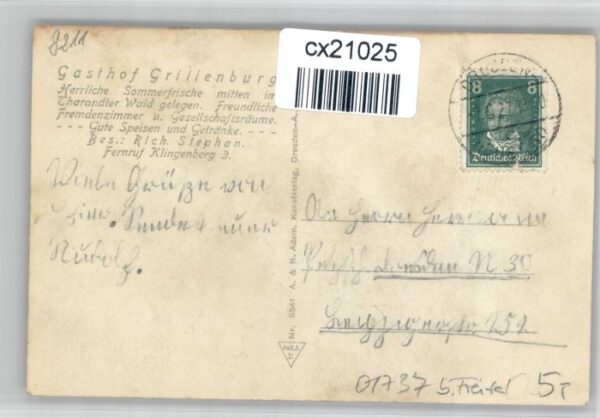 g211
cx21025
Gasthof Grillenburg
Herrliche Sommerfrische mitten im
Tharandter Wald gelegen. Freundliche
Fremdenzimmer u. Gesellschaftsräume.
--- Gute Speisen und Getränke. ---
Bes.: Rich. Stephan.
Fernruf Klingenberg 3.
8 8
Deutsches Reich
Viele Grüße von
hier. Sendet euer
Rudolf.
Nr. 5341 A. & R. Adam, Kunstverlag, Dresden-A.
An Herrn Hermann
Dresden N 30
Leipzigerstr 252
01737 5,